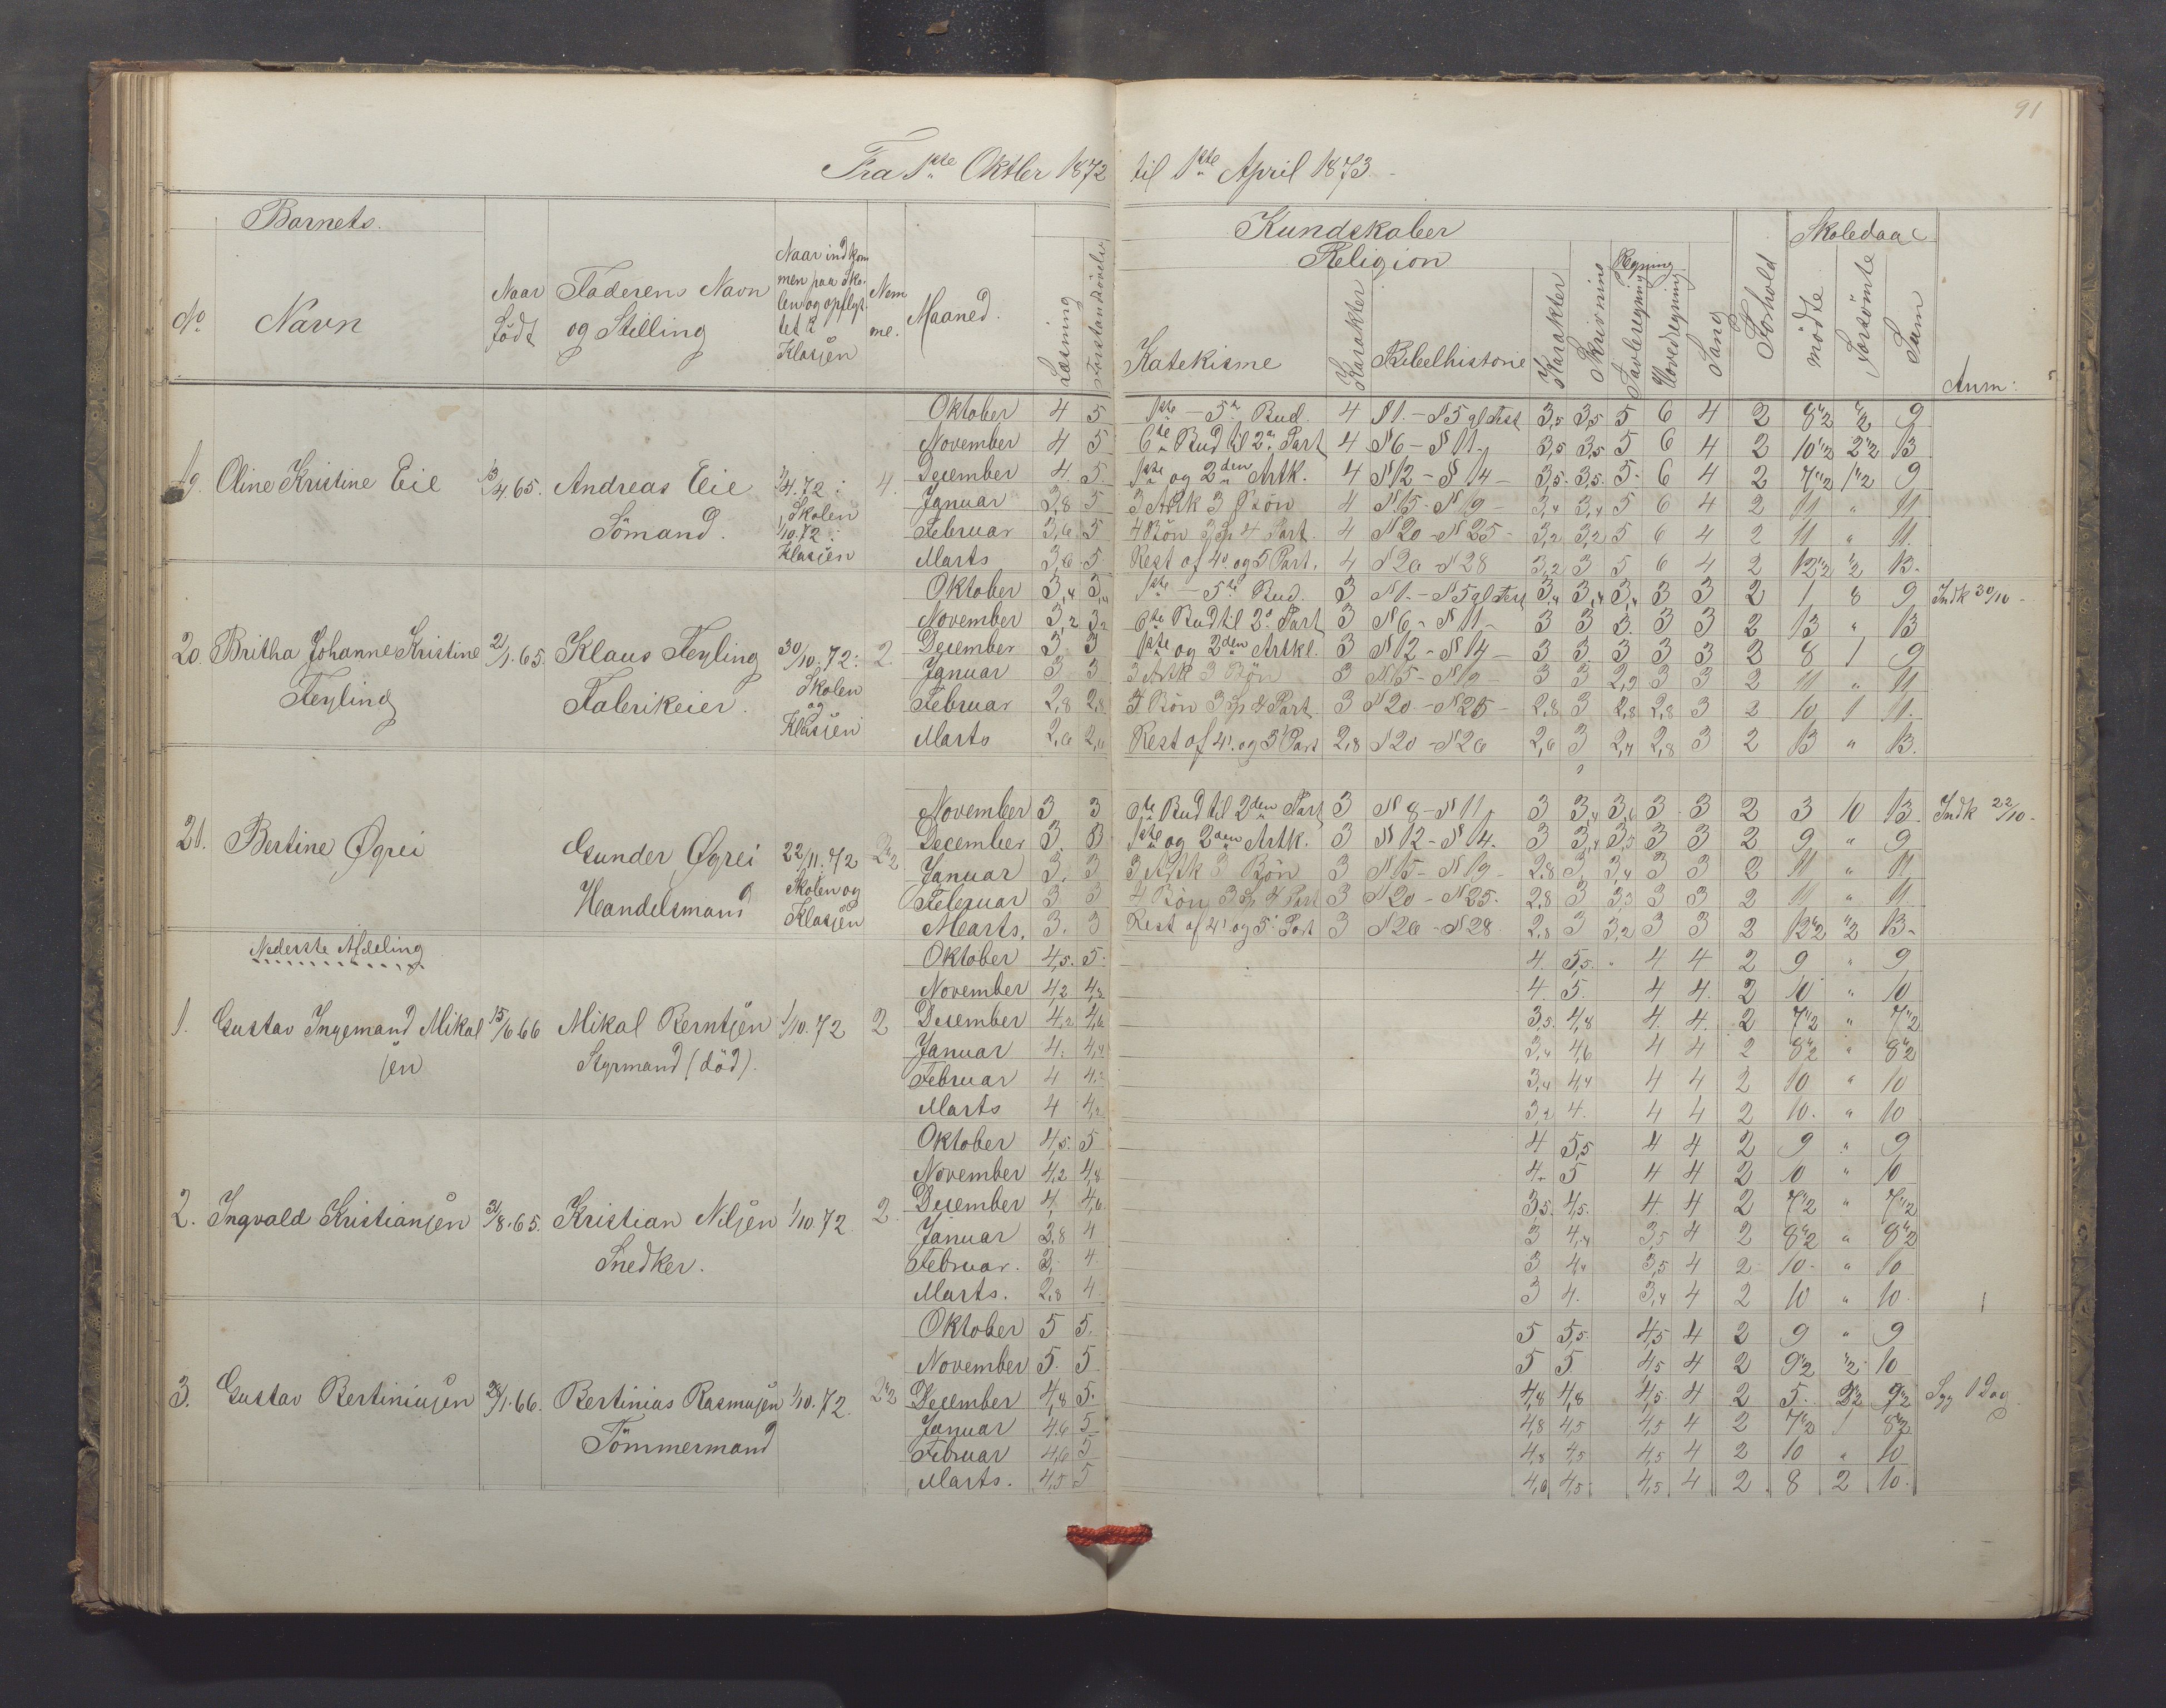 91
Fra 1ste Oktber 1872 til 1ste April 1873.
Barnets.
No Navn
Naar født
Faderens Navn og Stilling
Naar indkommen paa Skolen og opflyttet i Klasjen
Maaned.
Læsning
Forstandsövelse
Kundskaber
Religion
Katekisme
Karakter
Bibelhistorie
Karakter
Skrivning
Regning
Tavleregning
Hovedregning
Sang
Forhold
Skoledage
mödte
forsömte
Sum
Anm:
19. Oline Kristine Eie 13/4 65. Andreas Eie Sömand. 1/4.72 i Skolen 1/10.72 i Klasjen 4.
Oktober 4 5 1ste - 5te Bud. 4 §1. - §5 gl Test 3,5 3,5 5 6 4 2 8 1/2 1/2 9
November 4 5 6te Bud til 2den Part 4 §6 - §11. 3,5 3,5 5 6 4 2 10 1/2 2 1/2 13
December 4. 5. 1ste og 2den Artk. 4 §12 - §14 3,5. 3,5. 5. 6 4 2 7 1/2 1 1/2 9
Januar 3,8 5 3 Artk 3 Bön 4 §15 - §19 3,4 3,4 5 6 4 2 11 " 11
Februar 3,6 5 4 Bön 3 Sp 4 Part. 4 §20 - §25 3,2 3,2 5 6 4 2 11 " 11.
Marts 3,6 5 Rest af 4 og 5 Part. 4 §26 - §28 3,2 3 5 6 4 2 12 1/2 1/2 13.
20. Britha Johanne Kristine Feyling 21/1.65. Klaus Feyling Fabrikeier. 30/10.72 i Skolen og Klasjen 2.
Oktober 3,4 3,4 1ste - 5te Bud. 3 §1. - §5 gl Test 3,4 3,4 3,4 3 3 2 1 8 9 Indk 30/10
November 3,2 3,2 6te Bud til 2den Part 3 §6 - §11 3 3 3. 3 3 2 13 " 13
December 3 3 1ste og 2den Artkl. 3 §12 - §14 3 3 3 3 3 2 8 1 9
Januar 3 3 3 Artk 3 Bön 3 §15 - §19 3 3 2,9 3 3 2 11 " 11
Februar 2,8 2,8 4 Bön 3 Sp 4 Part 3 §20 - §25 2,8 3 2,8 2,8 3 2 10 1 11.
Marts 2,6 2,6 Rest af 4. og 5 Part 2,8 §20 - §26 2,6 3 2,4 2,8 3 2 13 " 13.
21. Bertine Øgrei Gunder Øgrei Handelsmand 22/11.72 Skolen og Klasjen 2 1/2
November 3 3 6te Bud til 2den Part 3 §8 - §11 3 3,4 3,6 3 3 2 3 10 13 Indk 22/10
December 3. 3 1ste og 2den Artk. 3 §12 - §14. 3 3,4 3,5 3 3 2 9 " 9
Januar 3. 3 3 Artk 3 Bön 3 §15 - §19 2,8 3 3,4 3 3 2 11 " 11
Februar 3 3 4 Bön 3 Sp 4 Part 3 §20 - §25. 2,8 3 3,3 3 3 2 11 " 11
Marts. 3. 3 Rest af 4 og 5 Part 3 §26 - §28 2,8 3 3,2 3 3 2 12 1/2 1/2 13.
Nederste Afdeling
1. Gustav Ingemand Mikaljen 15/6 66 Mikal Berntjen Styrmand (död). 1/10.72 2
Oktober 4,5. 5. 4. 5,5. " 4 4 2 9 " 9
November 4,2 4,2 4. 5. 4 4. 2 10 " 10
December 4,2 4,6 3,5. 4,8 4. 4. 2 7 1/2 " 7 1/2
Januar 4. 4,4 3,4 4,6 4 4 2 8 1/2 " 8 1/2
Februar 4 4. 3,4 4,4 4 4 2 10 " 10
Marts 4 4,2 3,2 4. 4 4 2 10. " 10
2. Ingvald Kristianjen 31/8.65. Kristian Niljen Snedker. 1/10.72 2.
Oktober 4,5. 5 4 5,5 4 4 2 9 " 9
November 4,2 4,8 4. 5 4 4 2 10 " 10
December 4, 4,6. 3,5. 4,5. 4. 4 2 7 1/2 " 7 1/2
Januar 3,8 4 3 4,4 3,5 4 2 8 1/2 " 8 1/2
Februar. 3. 4. 3 4,4 3,5 4 2 10. " 10
Marts. 2,8 4 3 4. 3,4 4 2 10 " 10.
3. Gustav Bertiniusjen 28/1.66. Bertinias Rasmusjen Tömmermand 1/10.72. 2 1/2
Oktober 5 5. 5 5,5. 4,5 4 2 9 " 9
November 5. 5 5 5 4,5 4 2 9 1/2 1/2 10
December 4,8 5. 4,8 4,8 4,5. 4 2 5. 4 1/2 9 1/2 Syg 1 Dag
Januar 4,6 5 4,8 4,5 4,5 4 2 7 1/2 1 8 1/2
Februar 4,6 5 4,8 4,5 4,5 4 2 10 " 10
Marts. 4,5 5 4,6 4,5 4,5 4 2 8 2 10.